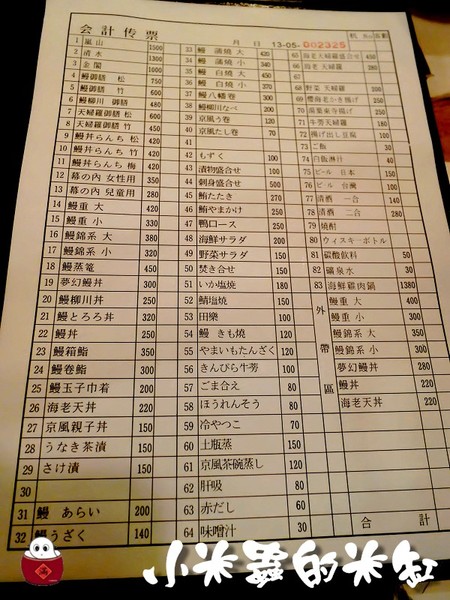 会計伝票
月 日 13-05- 002325
1 嵐山 1500
2 清水 1300
3 金閣 1000
4 鰻御膳 松 750
5 鰻御膳 竹 600
6 鰻柳川 御膳 480
7 天婦羅御膳 松 600
8 天婦羅御膳 竹 450
9 鰻丼らんち 松 500
10 鰻丼らんち 竹 420
11 鰻丼らんち 梅
12 幕の內 女性用 350
13 幕の內 兒童用 280
14 鰻重 大 420
15 鰻重 小 330
16 鰻錦系 大 380
17 鰻錦系 小 320
18 鰻蒸篭 450
19 夢幻鰻丼 300
20 鰻柳川丼 250
21 鰻とろろ丼 320
22 鰻丼 250
23 鰻箱鮨 350
24 鰻卷鮨 300
25 鰻玉子巾着 200
26 海老天丼 220
27 京風親子丼 150
28 うなき茶漬 150
29 さけ漬 150
30
31 鰻 あらい 200
32 鰻うざく 140
33 鰻 蒲燒 大 420
34 鰻 蒲燒 小 340
35 鰻 白燒 大 450
36 鰻 白燒 小 370
37 鰻八幡卷 300
38 鰻柳川なべ 200
39 京風う卷 120
40 京風たし卷 70
41
42 もずく 100
43 漬物盛合せ 100
44 刺身盛合せ 500
45 鮪たたき 270
46 鮪やまかけ 250
47 鴨ロース 250
48 海鮮サラダ 200
49 野菜サラダ 150
50 焚き合せ 150
51 いか塩燒 180
52 鯖塩燒 150
53 田樂 100
54 鰻 きも燒 120
55 やまいもたんざく 100
56 きんぴら牛旁 100
57 ごま合え 80
58 ほうれんそう 80
59 冷やつこ 70
60 土瓶蒸 150
61 京風茶碗蒸し 120
62 肝吸 80
63 赤だし 60
64 味噌汁 30
65 海老天婦羅盛合せ 450
66 海老 天婦羅 280
67
68 野菜 天婦羅 200
69 櫻海老かき揚げ 250
70 湯葉東寺揚げ 250
71 牛旁天婦羅 180
72 揚げ出し豆腐 100
73 ご飯 30
74 白飯淋汁 40
75 ビール 日本 150
76 ビル 台灣 100
77 清酒 一合 140
78 清酒 二合 280
79 燒酎
80 ウィスキーボトル
81 碳酸飲料 50
82 礦泉水 30
83 海鮮雞肉鍋 1380
外帶區
鰻重 大 400
鰻重 小 300
鰻錦系 大 350
鰻錦系 小 300
夢幻鰻丼 280
鰻丼 220
海老天丼 220
合 計
小米蟲的米缸